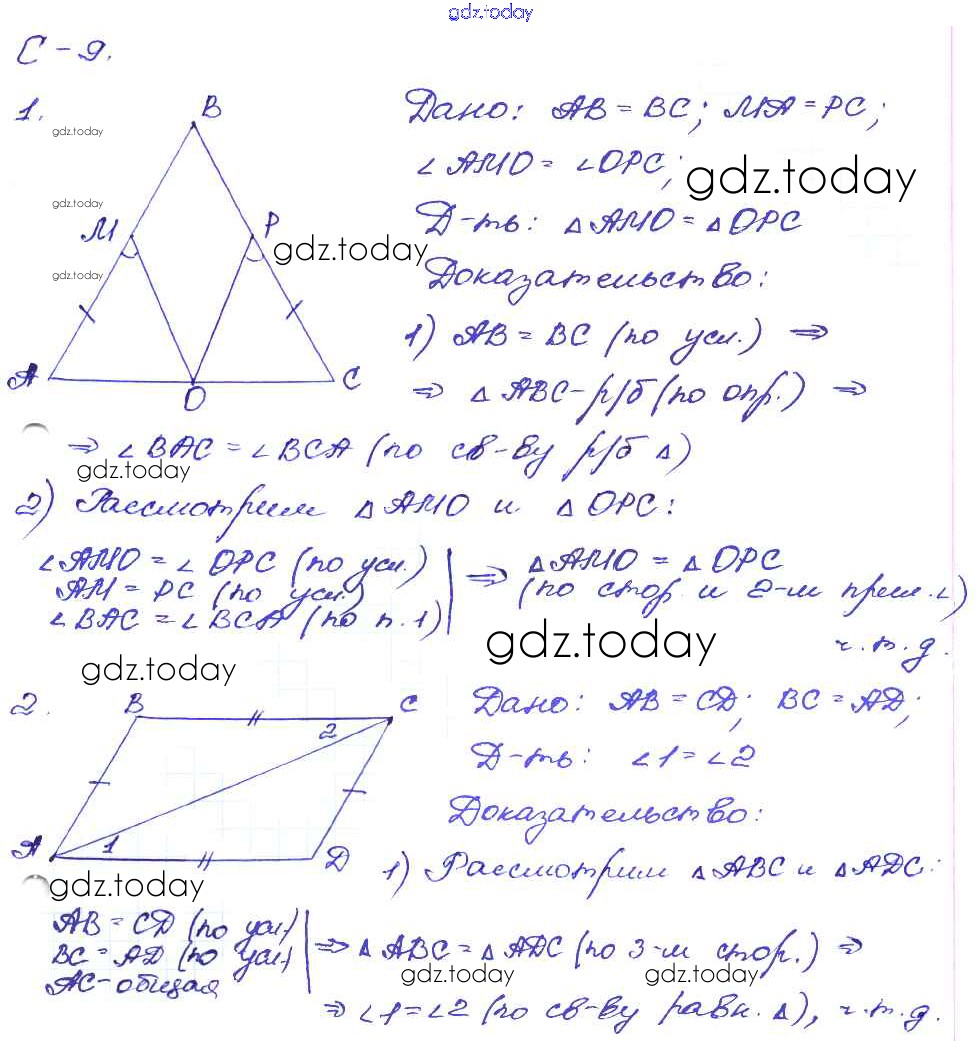 gdz.today
С-9.
1.
B
M
P
A
O
C
gdz.today
gdz.today
gdz.today
gdz.today
Дано: AB = BC; MA = PC;
∠AMO = ∠OPC;
gdz.today
Д-ть: △AMO = △OPC
Доказательство:
1) AB = BC (по усл.) ⇒
⇒ △ABC - р/б (по опр.) ⇒
⇒ ∠BAC = ∠BCA (по св-ву р/б △)
gdz.today
2) Рассмотрим △AMO и △OPC:
∠AMO = ∠OPC (по усл.)
AM = PC (по усл.)
∠BAC = ∠BCA (по п.1)
⇒ △AMO = △OPC
(по стор. и 2-м прил. ∠)
ч.т.д.
gdz.today
gdz.today
2.
B
C
2
A
1
D
Дано: AB = CD; BC = AD;
Д-ть: ∠1 = ∠2
Доказательство:
1) Рассмотрим △ABC и △ADC:
gdz.today
AB = CD (по усл)
BC = AD (по усл)
AC - общая
⇒ △ABC = △ADC (по 3-м стор.) ⇒
gdz.today
gdz.today
⇒ ∠1 = ∠2 (по св-ву равн. △), ч.т.д.